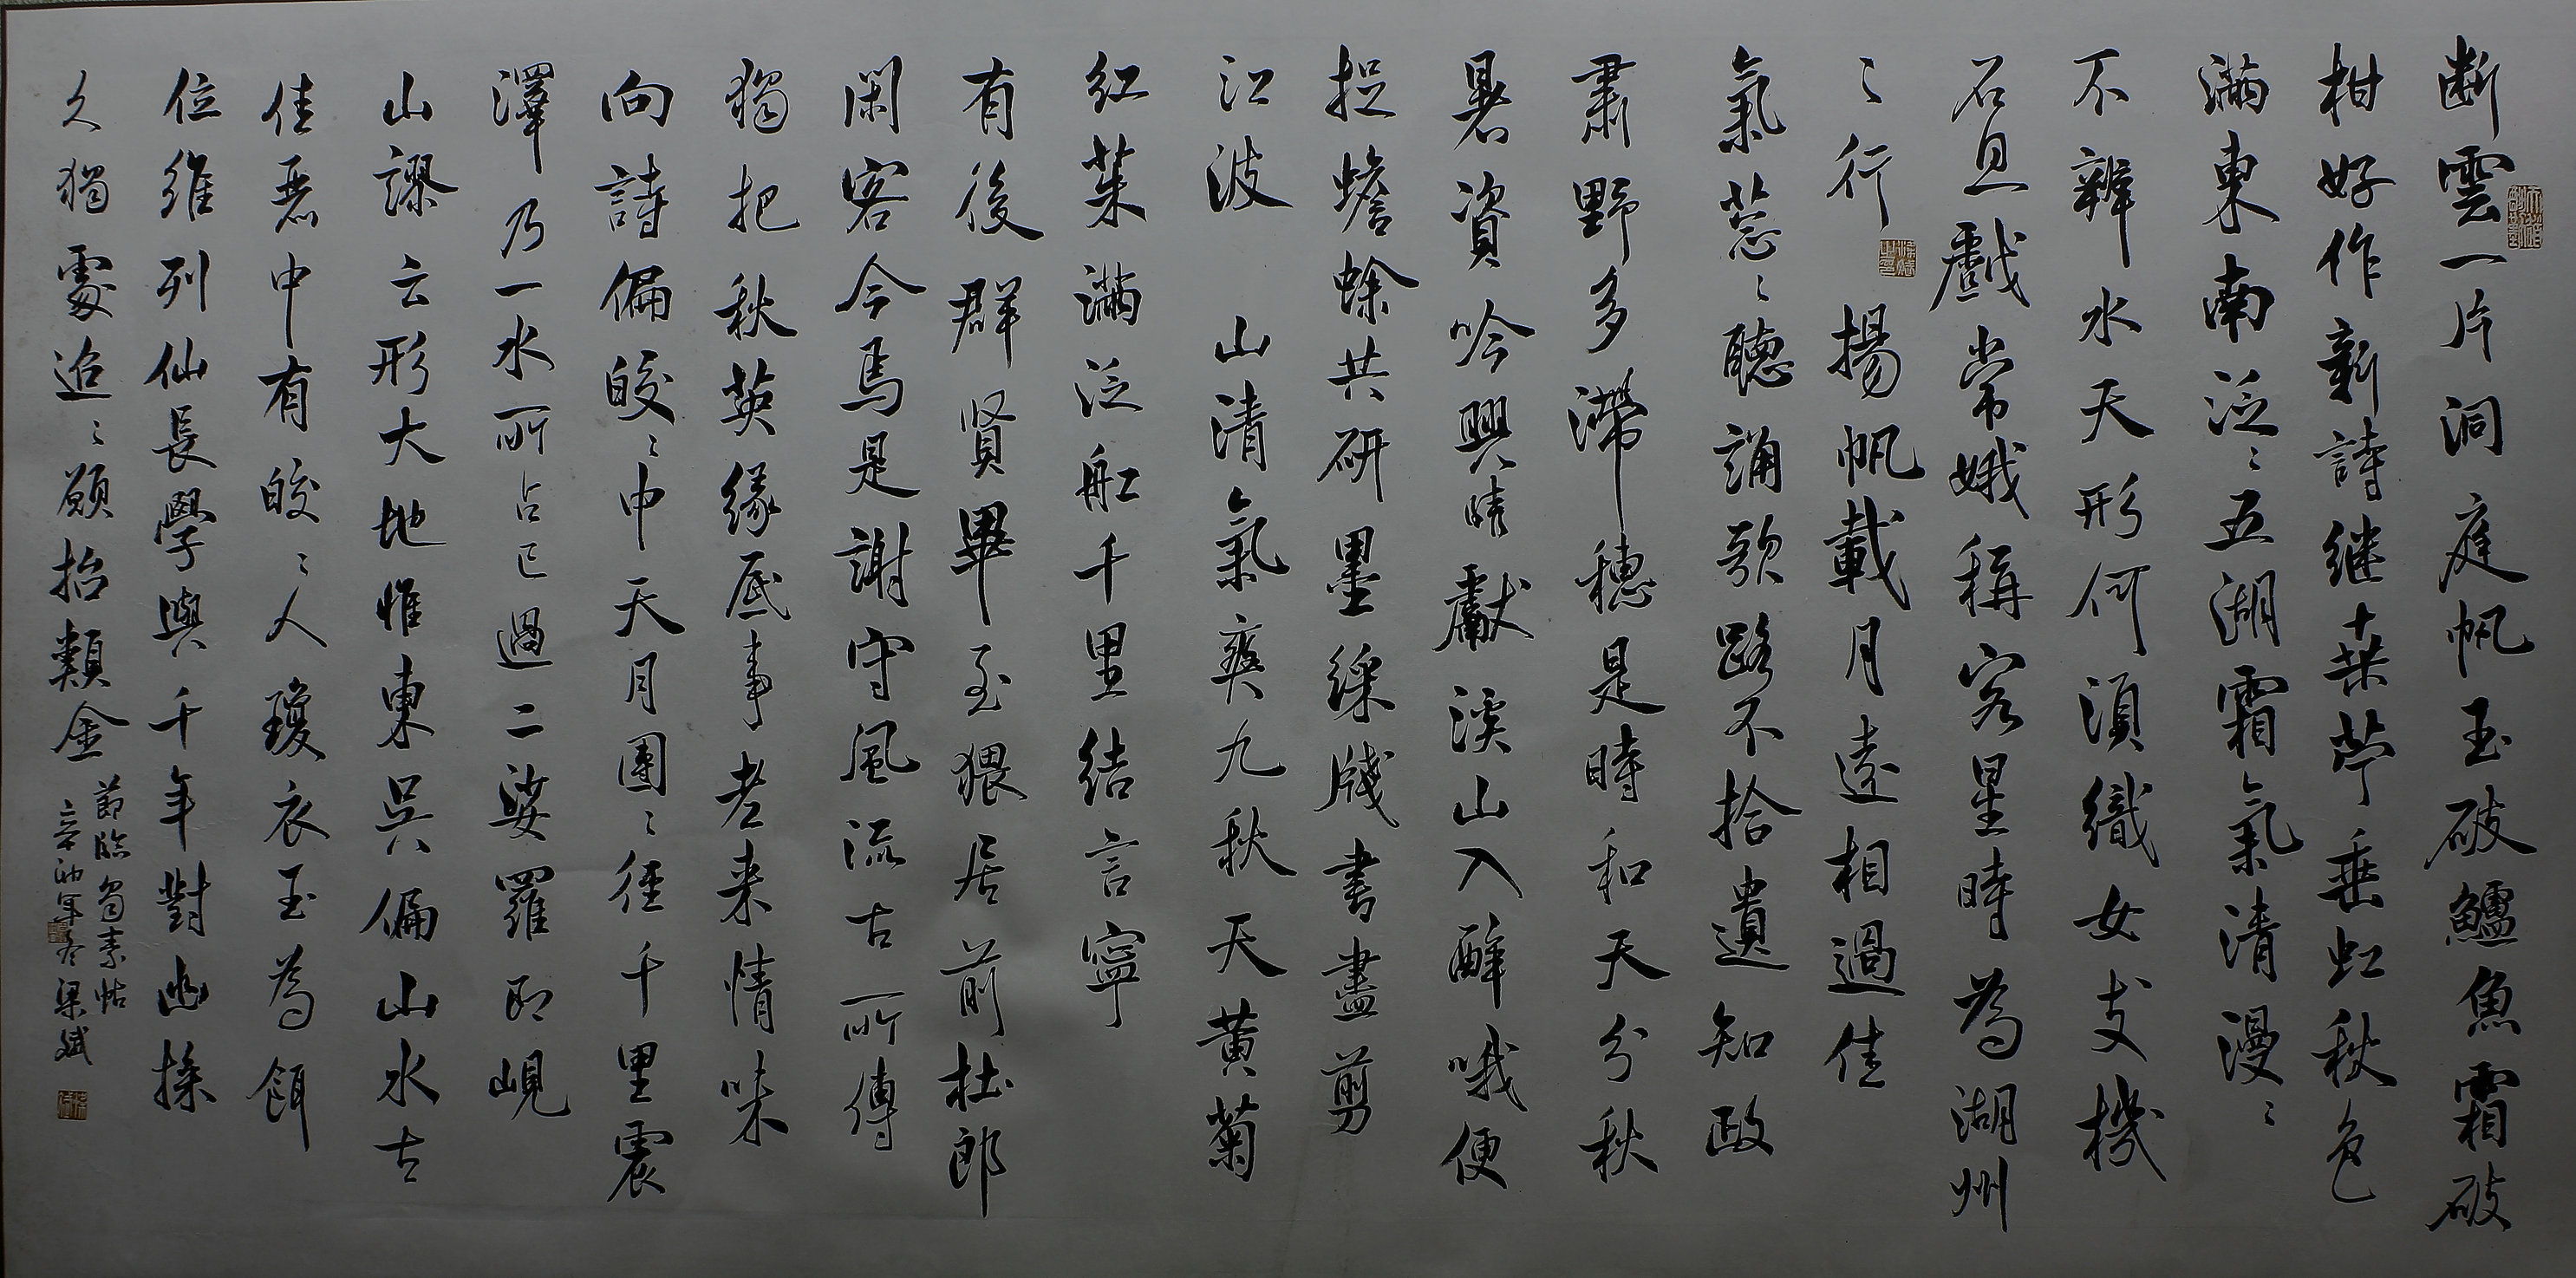 断雲一片洞庭帆玉破鱸魚霜破
柑好作新詩继桑苧垂虹秋色
滿東南泛〻五湖霜氣清漫〻
不辨水天形何湏織女支機
石且戲常娥稱客星時為湖州
〻行 揚帆載月遠相過佳
氣蔥〻聽誦歌路不拾遺知政
肅野多滯穗是時和天分秋
暑資吟興晴獻溪山入醉哦便
捉蟾蜍共研墨綵牋書盡剪
江波 山清氣爽九秋天黄菊
红茱滿泛舡千里结言寧
有後群贤畢至猥居前杜郎
閑客今焉是謝守風流古所傳
獨把秋英缘底事老来情味
向詩偏皎〻中天月團〻徑千里震
澤乃一水所占已過二娑羅即峴
山謬云形大地惟東吳偏山水古
佳惡中有皎〻人瓊衣玉為餌
位維列仙長學與千年對幽操
久獨處迨〻願招類金
節臨蜀素帖
辛卯年冬梁斌